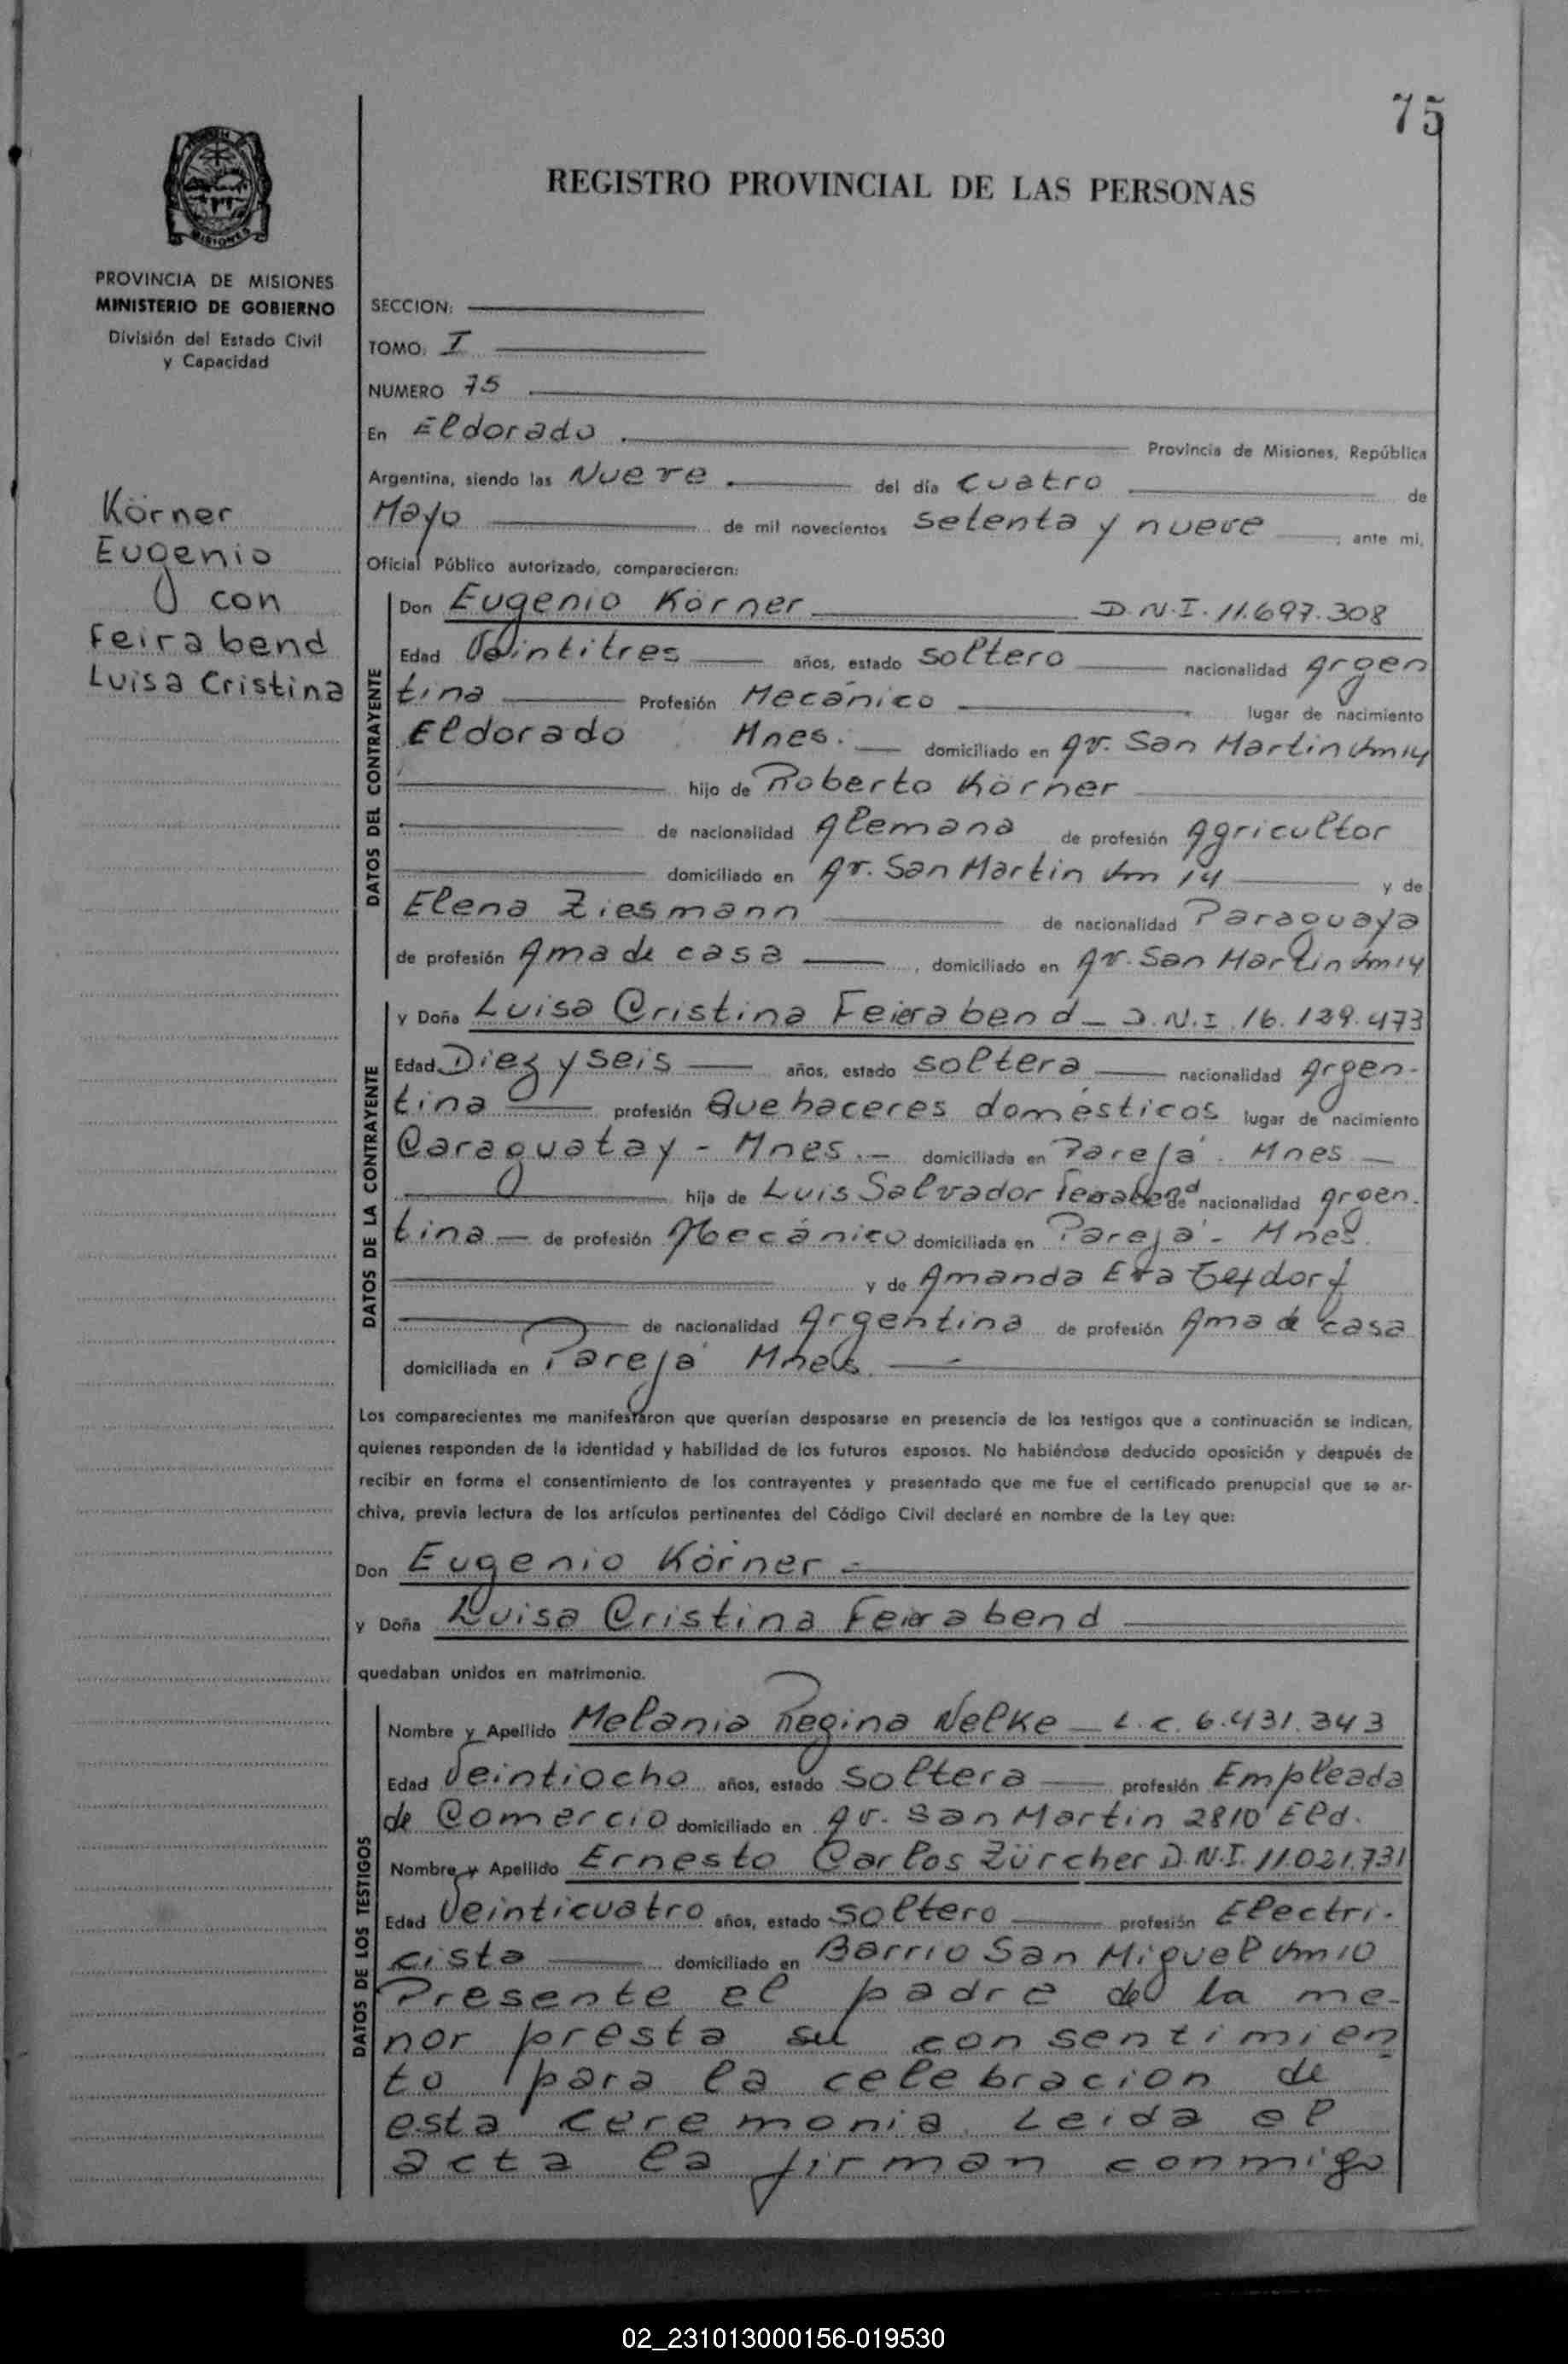 75
REGISTRO PROVINCIAL DE LAS PERSONAS
MISIONES
PROVINCIA DE MISIONES
MINISTERIO DE GOBIERNO
División del Estado Civil
y Capacidad
Körner
Eugenio
con
Feirabend
Luisa Cristina
SECCION:
TOMO: I
NUMERO 75
En Eldorado Provincia de Misiones, República
Argentina, siendo las Nueve del día cuatro de
Mayo de mil novecientos setenta y nueve ; ante mi,
Oficial Público autorizado, comparecieron:
DATOS DEL CONTRAYENTE
Don Eugenio Körner D.N.I. 11.697.308
Edad Veintitres años, estado soltero nacionalidad Argen
tina Profesión Mecánico lugar de nacimiento
Eldorado Mnes. domiciliado en Av. San Martin Km 14
hijo de Roberto Körner
de nacionalidad Alemana de profesión Agricultor
domiciliado en Av. San Martin Km 14 y de
Elena Ziesmann de nacionalidad Paraguaya
de profesión Ama de casa , domiciliado en Av. San Martin Km 14
DATOS DE LA CONTRAYENTE
y Doña Luisa Cristina Feierabend - D.N.I. 16.129.473
Edad Diez y seis años, estado soltera nacionalidad Argen-
tina profesión Quehaceres domésticos lugar de nacimiento
Caraguatay - Mnes.- domiciliada en Parejá. Mnes
hija de Luis Salvador de nacionalidad Argen.
tina de profesión Mecánico domiciliada en Parejá - Mnes.
y de Amanda Eva
de nacionalidad Argentina de profesión Ama de casa
domiciliada en Parejá Mnes.
Los comparecientes me manifestaron que querían desposarse en presencia de los testigos que a continuación se indican,
quienes responden de la identidad y habilidad de los futuros esposos. No habiéndose deducido oposición y después de
recibir en forma el consentimiento de los contrayentes y presentado que me fue el certificado prenupcial que se ar-
chiva, previa lectura de los artículos pertinentes del Código Civil declaré en nombre de la Ley que:
Don Eugenio Körner
y Doña Luisa Cristina Feierabend
quedaban unidos en matrimonio.
DATOS DE LOS TESTIGOS
Nombre y Apellido Melania Regina Nelke - L.C. 6.431.343
Edad Veintiocho años, estado soltera profesión Empleada
de Comercio domiciliado en Av. San Martin 2810 Eld.
Nombre y Apellido Ernesto Carlos Zürcher D.N.I. 11.021.731
Edad Veinticuatro años, estado soltero profesión Electri-
cista domiciliado en Barrio San Miguel Km 10
Presente el padre de la me-
nor presta su consentimien
to para la celebracion de
esta ceremonia. Leida el
acta la firman conmigo
02_231013000156-019530